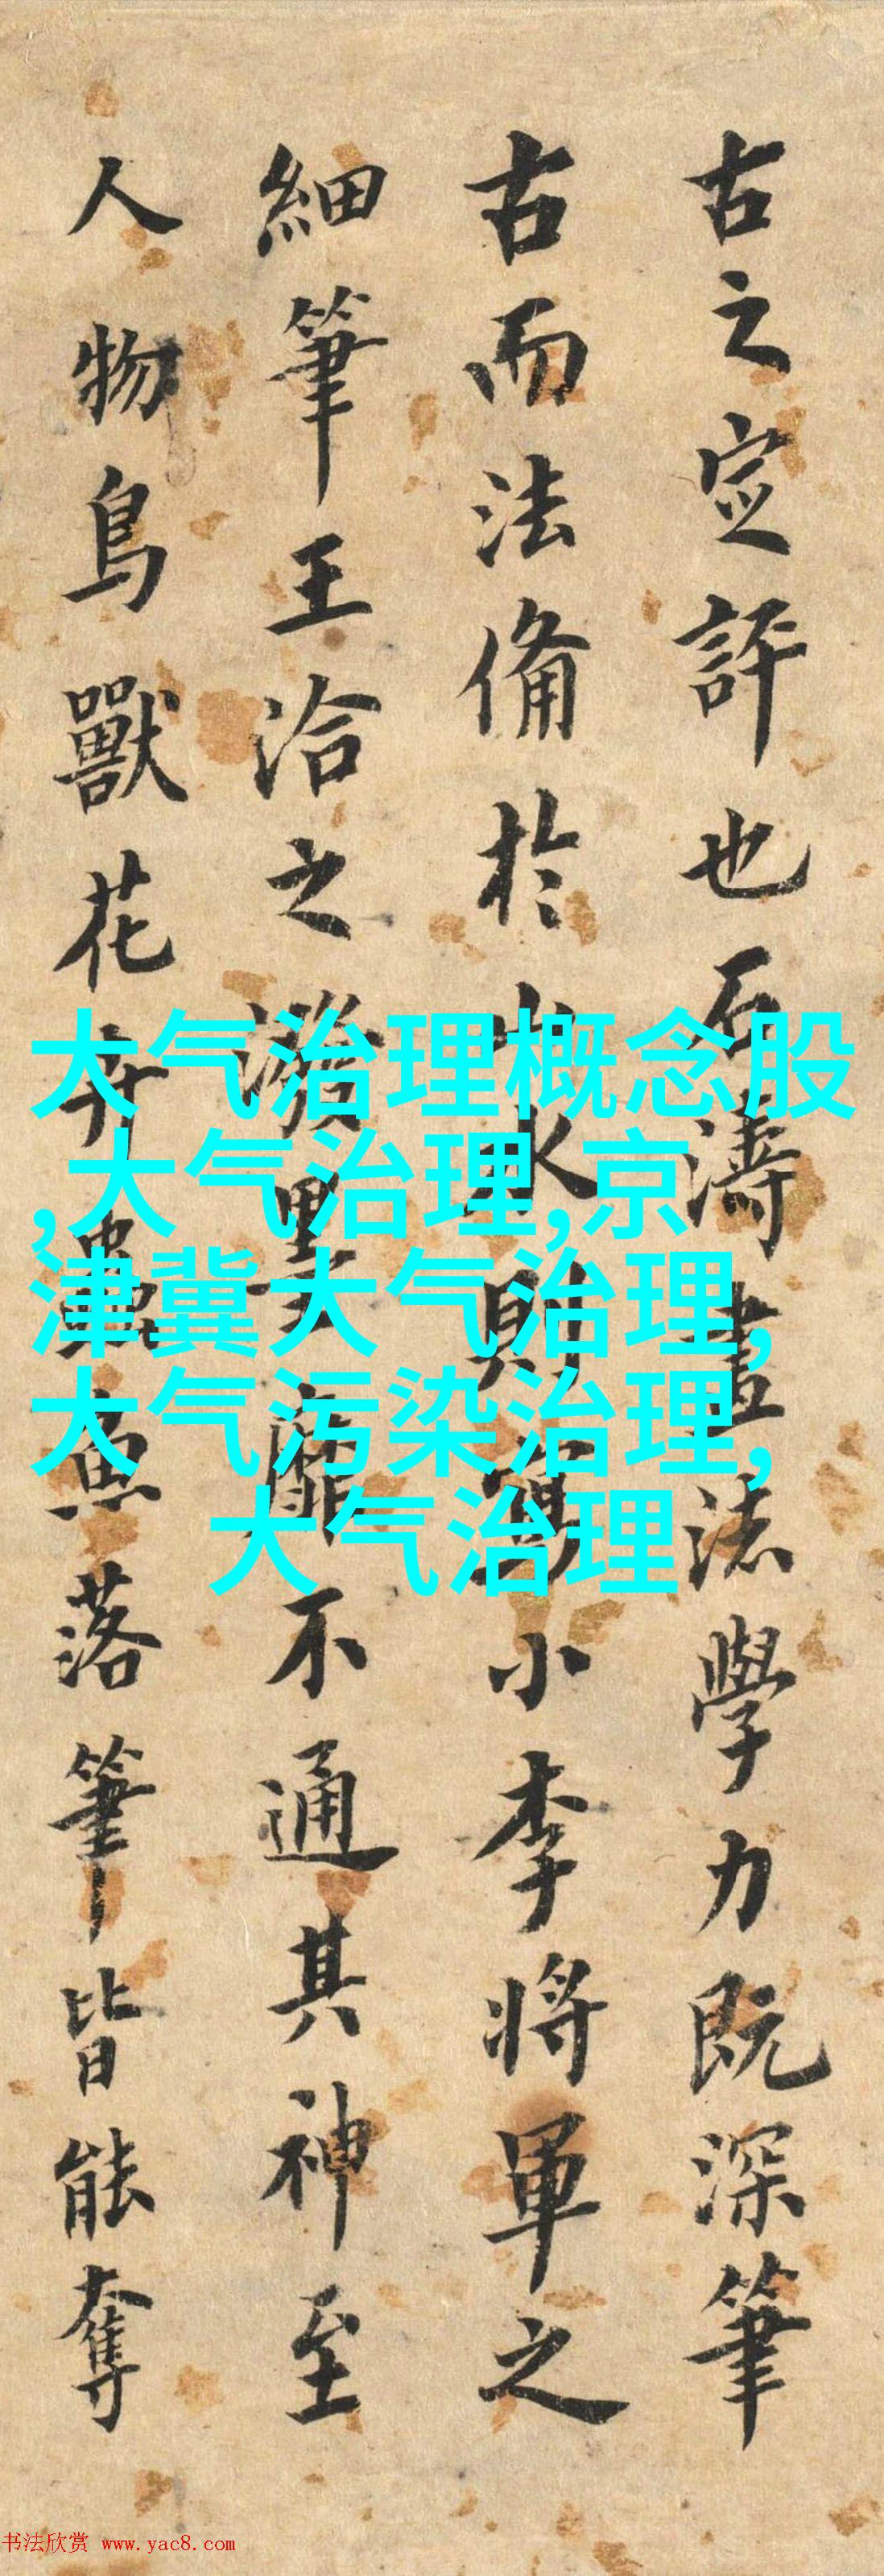 古之定評也石濤畫法學力既深筆
古而法備於山水則寫小李將軍之
細筆王洽之潑墨靡不通其神至
人物鳥獸花卉蟲魚落筆皆能奪
大气治理概念股
,大气治理,京
津冀大气治理,
大气污染治理,
大气治理
书法欣赏 www.yac8.com